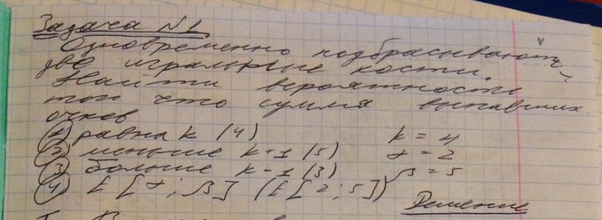 Задача №1
Одновременно подбрасывают
две игральные кости.
Найти вероятность
того что сумма выпавших
очков
1) равна k (4) k = 4
2) меньше k+1 (5) α = 2
3) больше k-1 (3) β = 5
4) [α; β] ([2; 5])
Решение